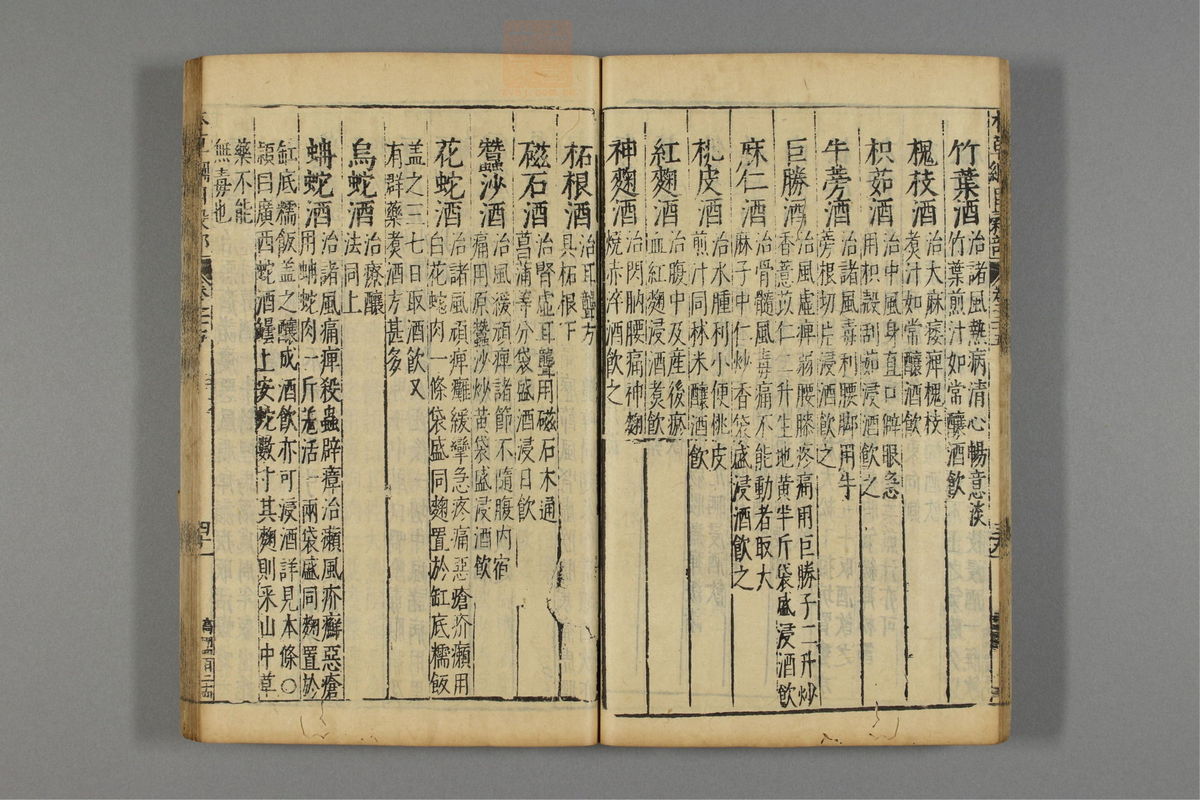 竹葉酒 治諸風熱病清心暢意淡
竹葉煎汁如常釀酒飲
槐枝酒 治大麻痿痺槐枝
煮汁如常釀酒飲
枳茹酒 治中風身直口僻眼急
用枳殼刮茹浸酒飲之
牛蒡酒 治諸風毒利腰脚用牛
蒡根切片浸酒飲之
巨勝酒 治風虛痺弱腰膝疼痛用巨勝子二升炒
香薏苡仁二升生地黄半斤袋盛浸酒飲
麻仁酒 治骨髓風毒痛不能動者取大
麻子中仁炒香袋盛浸酒飲之
桃皮酒 治水腫利小便桃皮
煎汁同秫米釀酒飲
紅麴酒 治腹中及産後瘀
血紅麴浸酒煮飲
神麴酒 治閃肭腰痛神麴
燒赤淬酒飲之
柘根酒 治耳聾方
具柘根下
磁石酒 治腎虛耳聾用磁石木通
菖蒲等分袋盛酒浸日飲
蠶沙酒 治風緩頑痺諸節不隨腹内宿
痛用原蠶沙炒黄袋盛浸酒飲
花蛇酒 治諸風頑痺癱緩攣急疼痛惡瘡疥癩用
白花蛇肉一條袋盛同麴置於缸底糯飯
盖之三七日取酒飲又
有群藥煮酒方甚多
烏蛇酒 治療釀
法同上
蚺蛇酒 治諸風痛痺殺蟲辟瘴治癩風疥癬惡瘡
用蚺蛇肉一斤羗活一兩袋盛同麴置於
缸底糯飯盖之釀成酒飲亦可浸酒詳見本條〇
頴曰廣西蛇酒罈上安蛇數寸其麴則采山中草
藥不能
無毒也